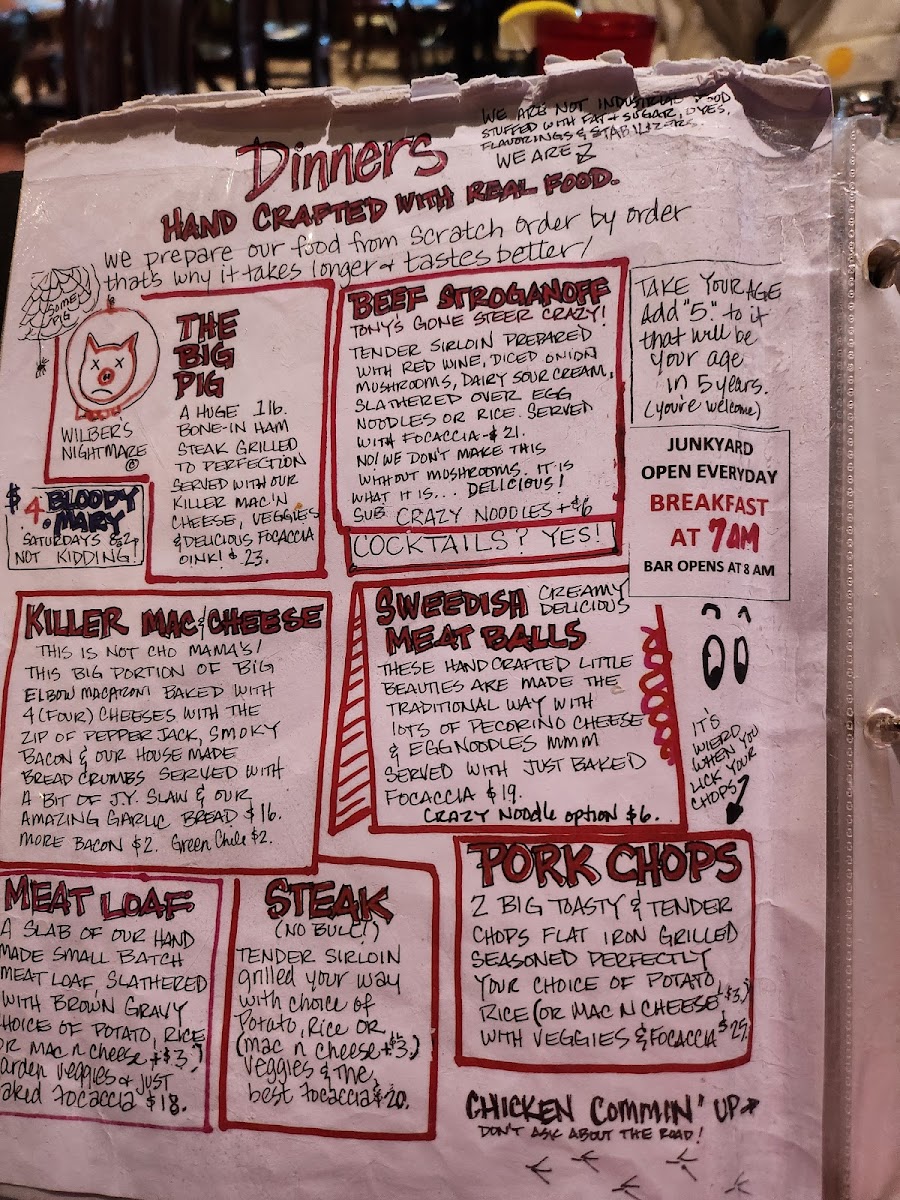 WE ARE NOT INDUSTRIAL FOOD
STUFFED WITH FAT & SUGAR, DYES,
FLAVORINGS & STABILIZERS.
WE ARE
Dinners
HAND CRAFTED WITH REAL FOOD.
We prepare our food from scratch order by order
that's why it takes longer & tastes better!
SOME
PIG
WILBER'S
NIGHTMARE
THE
BIG
PIG
A HUGE 1 lb.
BONE-IN HAM
STEAK GRILLED
TO PERFECTION
SERVED WITH OUR
KILLER MAC'N
CHEESE, VEGGIES
& DELICIOUS FOCACCIA
OINK! $23.
$4 BLOODY
MARY
SATURDAYS
NOT KIDDING!
BEEF STROGANOFF
TONY'S GONE STEER CRAZY!
TENDER SIRLOIN PREPARED
WITH RED WINE, DICED ONION
MUSHROOMS, DAIRY SOUR CREAM,
SLATHERED OVER EGG
NOODLES OR RICE. SERVED
WITH FOCACCIA-$21.
NO! WE DON'T MAKE THIS
WITHOUT MUSHROOMS. IT IS
WHAT IT IS... DELICIOUS!
SUB CRAZY NOODLES +$6
COCKTAILS? YES!
TAKE YOUR AGE
Add "5" to it
that will be
your age
in 5 years.
(you're welcome)
JUNKYARD
OPEN EVERYDAY
BREAKFAST
AT 7AM
BAR OPENS AT 8 AM
KILLER MAC & CHEESE
THIS IS NOT CHO MAMA'S!
THIS BIG PORTION OF BIG
ELBOW MACARONI BAKED WITH
4 (FOUR) CHEESES WITH THE
ZIP OF PEPPER JACK, SMOKY
BACON & OUR HOUSE MADE
BREAD CRUMBS SERVED WITH
A BIT OF J.Y. SLAW & OUR
AMAZING GARLIC BREAD $16.
MORE BACON $2. Green Chile $2.
SWEEDISH CREAMY DELICIOUS
MEAT BALLS
THESE HANDCRAFTED LITTLE
BEAUTIES ARE MADE THE
TRADITIONAL WAY WITH
LOTS OF PECORINO CHEESE
& EGG NOODLES MMM
SERVED WITH JUST BAKED
FOCACCIA $19.
CRAZY Noodle option $6.
IT'S
WIERD
WHEN YOU
LICK YOUR
CHOPS
MEAT LOAF
A SLAB OF OUR HAND
MADE SMALL BATCH
MEAT LOAF, SLATHERED
WITH BROWN GRAVY
HOICE OF POTATO, RICE
OR MAC n cheese +$3.)
arden veggies & JUST
aked focaccia $18.
STEAK
(NO BULL!)
TENDER SIRLOIN
grilled your way
with choice of
Potato, Rice OR
(mac n cheese +$3.)
Veggies & the
best focaccia $20.
PORK CHOPS
2 BIG TOASTY & TENDER
CHOPS FLAT IRON GRILLED
SEASONED PERFECTLY
YOUR CHOICE OF POTATO,
RICE (OR MAC N CHEESE +$3.)
WITH VEGGIES & FOCACCIA
CHICKEN COMMIN' UP
DON'T ASK ABOUT THE ROAD!